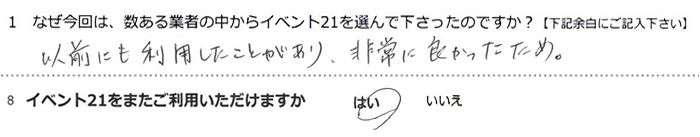 1 なぜ今回は、数ある業者の中からイベント21を選んで下さったのですか？【下記余白にご記入下さい】
以前にも利用したことがあり、非常に良かったため。
8 イベント21をまたご利用いただけますか はい いいえ